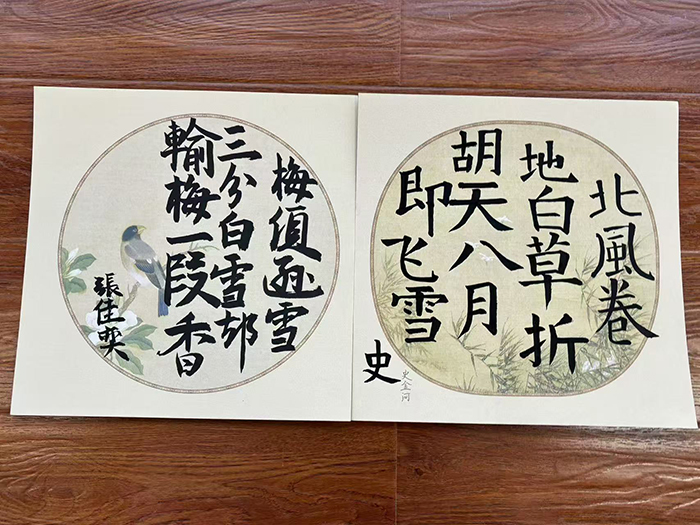 梅須遜雪
三分白雪却
輸梅一段香
張佳奕
北風卷
地白草折
胡天八月
即飞雪
史
史金问